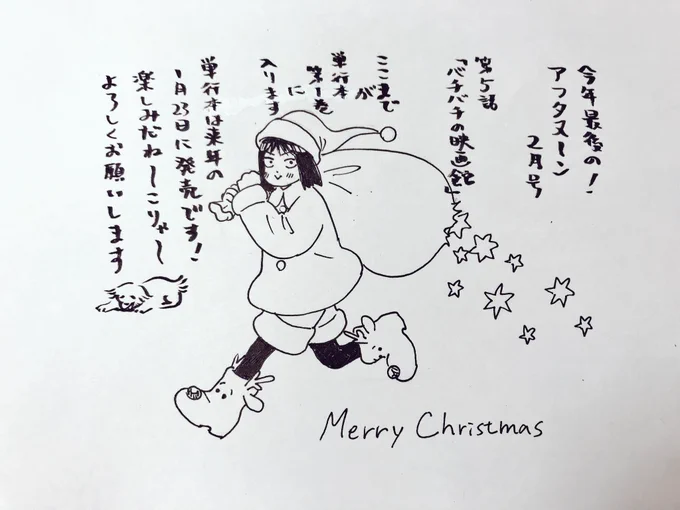 今年最後の！
アフタヌーン
2月号
第5話
「バチバチの映画館」
ここまで
が
単行本
第1巻
に
入ります
単行本は来年の
1月23日に発売です！
楽しみだね〜こりゃ〜
よろしくお願いします
Merry Christmas